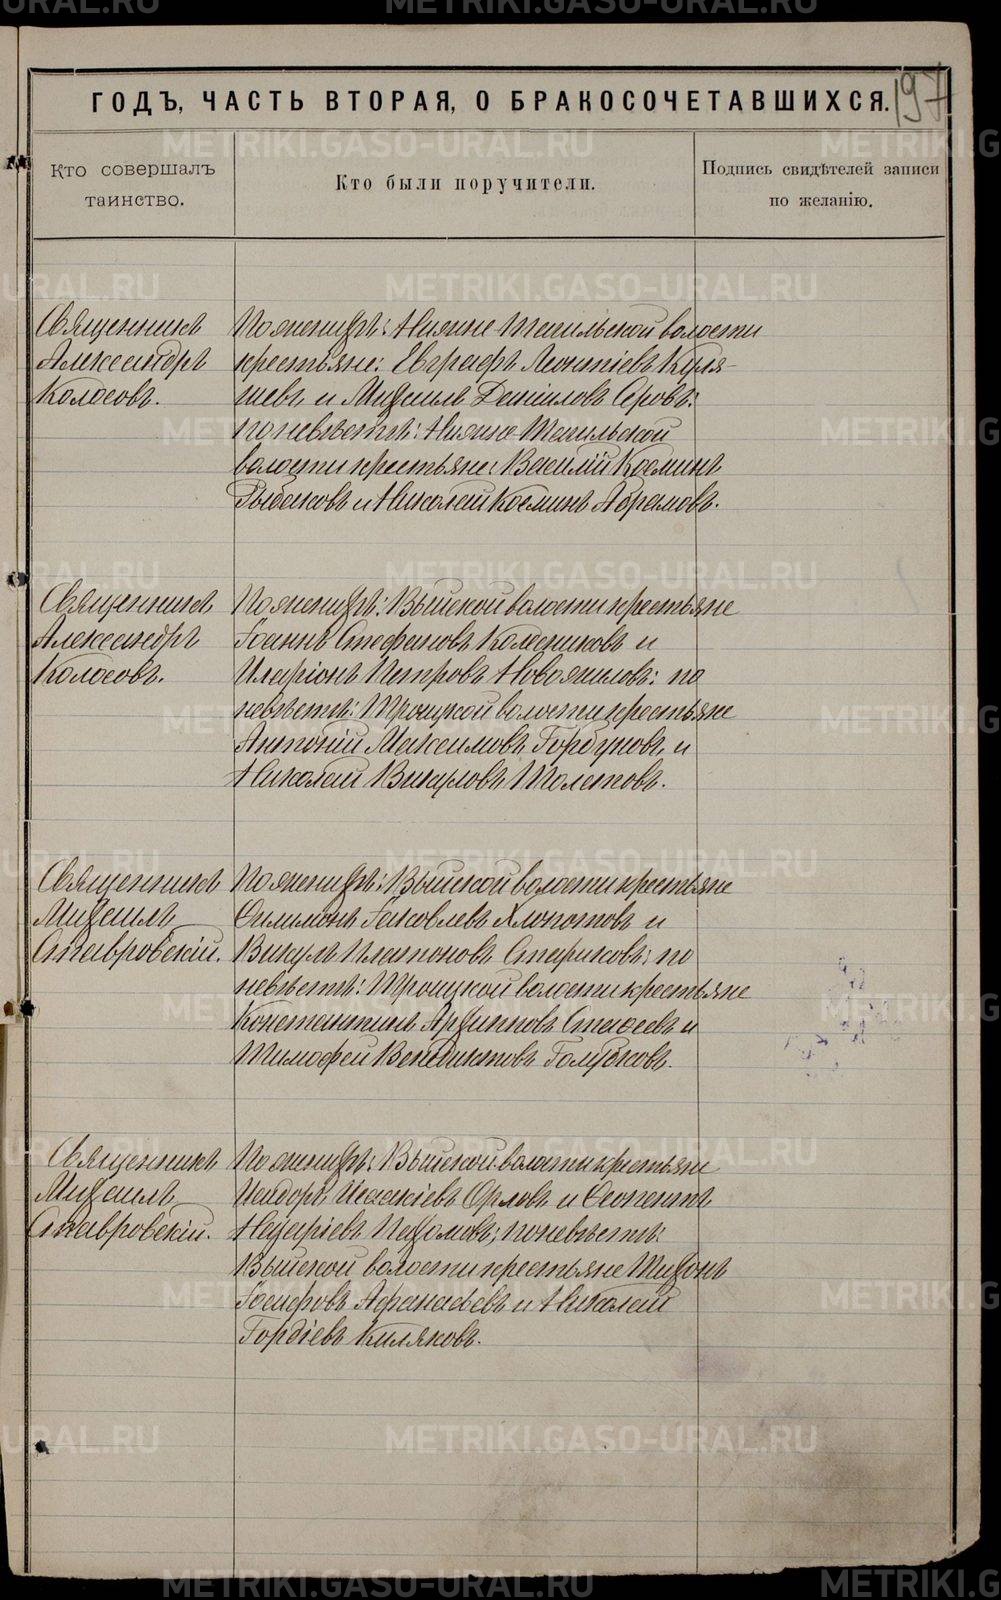 197
ГОДЪ, ЧАСТЬ ВТОРАЯ, О БРАКОСОЧЕТАВШИХСЯ.
Кто совершалъ
таинство.
Кто были поручители.
Подпись свидѣтелей записи
по желанію.
Священникъ
Александръ
Колосовъ.
По женихѣ: Нижне Тагильской волости
крестьяне: Евграфъ Леонтіевъ Коря-
шевъ и Михаилъ Даніиловъ Серовъ;
по невѣстѣ: Нижне-Тагильской
волости крестьяне: Василій Косминъ
Рыбаковъ и Николай Косминъ Абрамовъ.
Священникъ
Александръ
Колосовъ.
По женихѣ: Выйской волости крестьяне
Іоаннъ Стефановъ Колесниковъ и
Иларіонъ Петровъ Новожиловъ: по
невѣстѣ: Троицкой волости крестьяне
Антоній Максимовъ Горбуновъ и
Николай Викуловъ Толстовъ.
Священникъ
Михаилъ
Ставровскій.
По женихѣ: Выйской волости крестьяне
Филимонъ Іаковлевъ Хлопотовъ и
Викулъ Платоновъ Стариковъ; по
невѣстѣ: Троицкой волости крестьяне
Константинъ Архиповъ и
Тимофей Венедиктовъ Голубковъ.
Священникъ
Михаилъ
Ставровскій.
По женихѣ: Выйской волости крестьяне
Исидоръ Исаакіевъ Орловъ и Феопентъ
Назаріевъ Пахомовъ; по невѣстѣ:
Выйской волости крестьяне Тихонъ
Іосифовъ Афанасьевъ и Николай
Гордіевъ Киляковъ.
METRIKI.GASO-URAL.RU